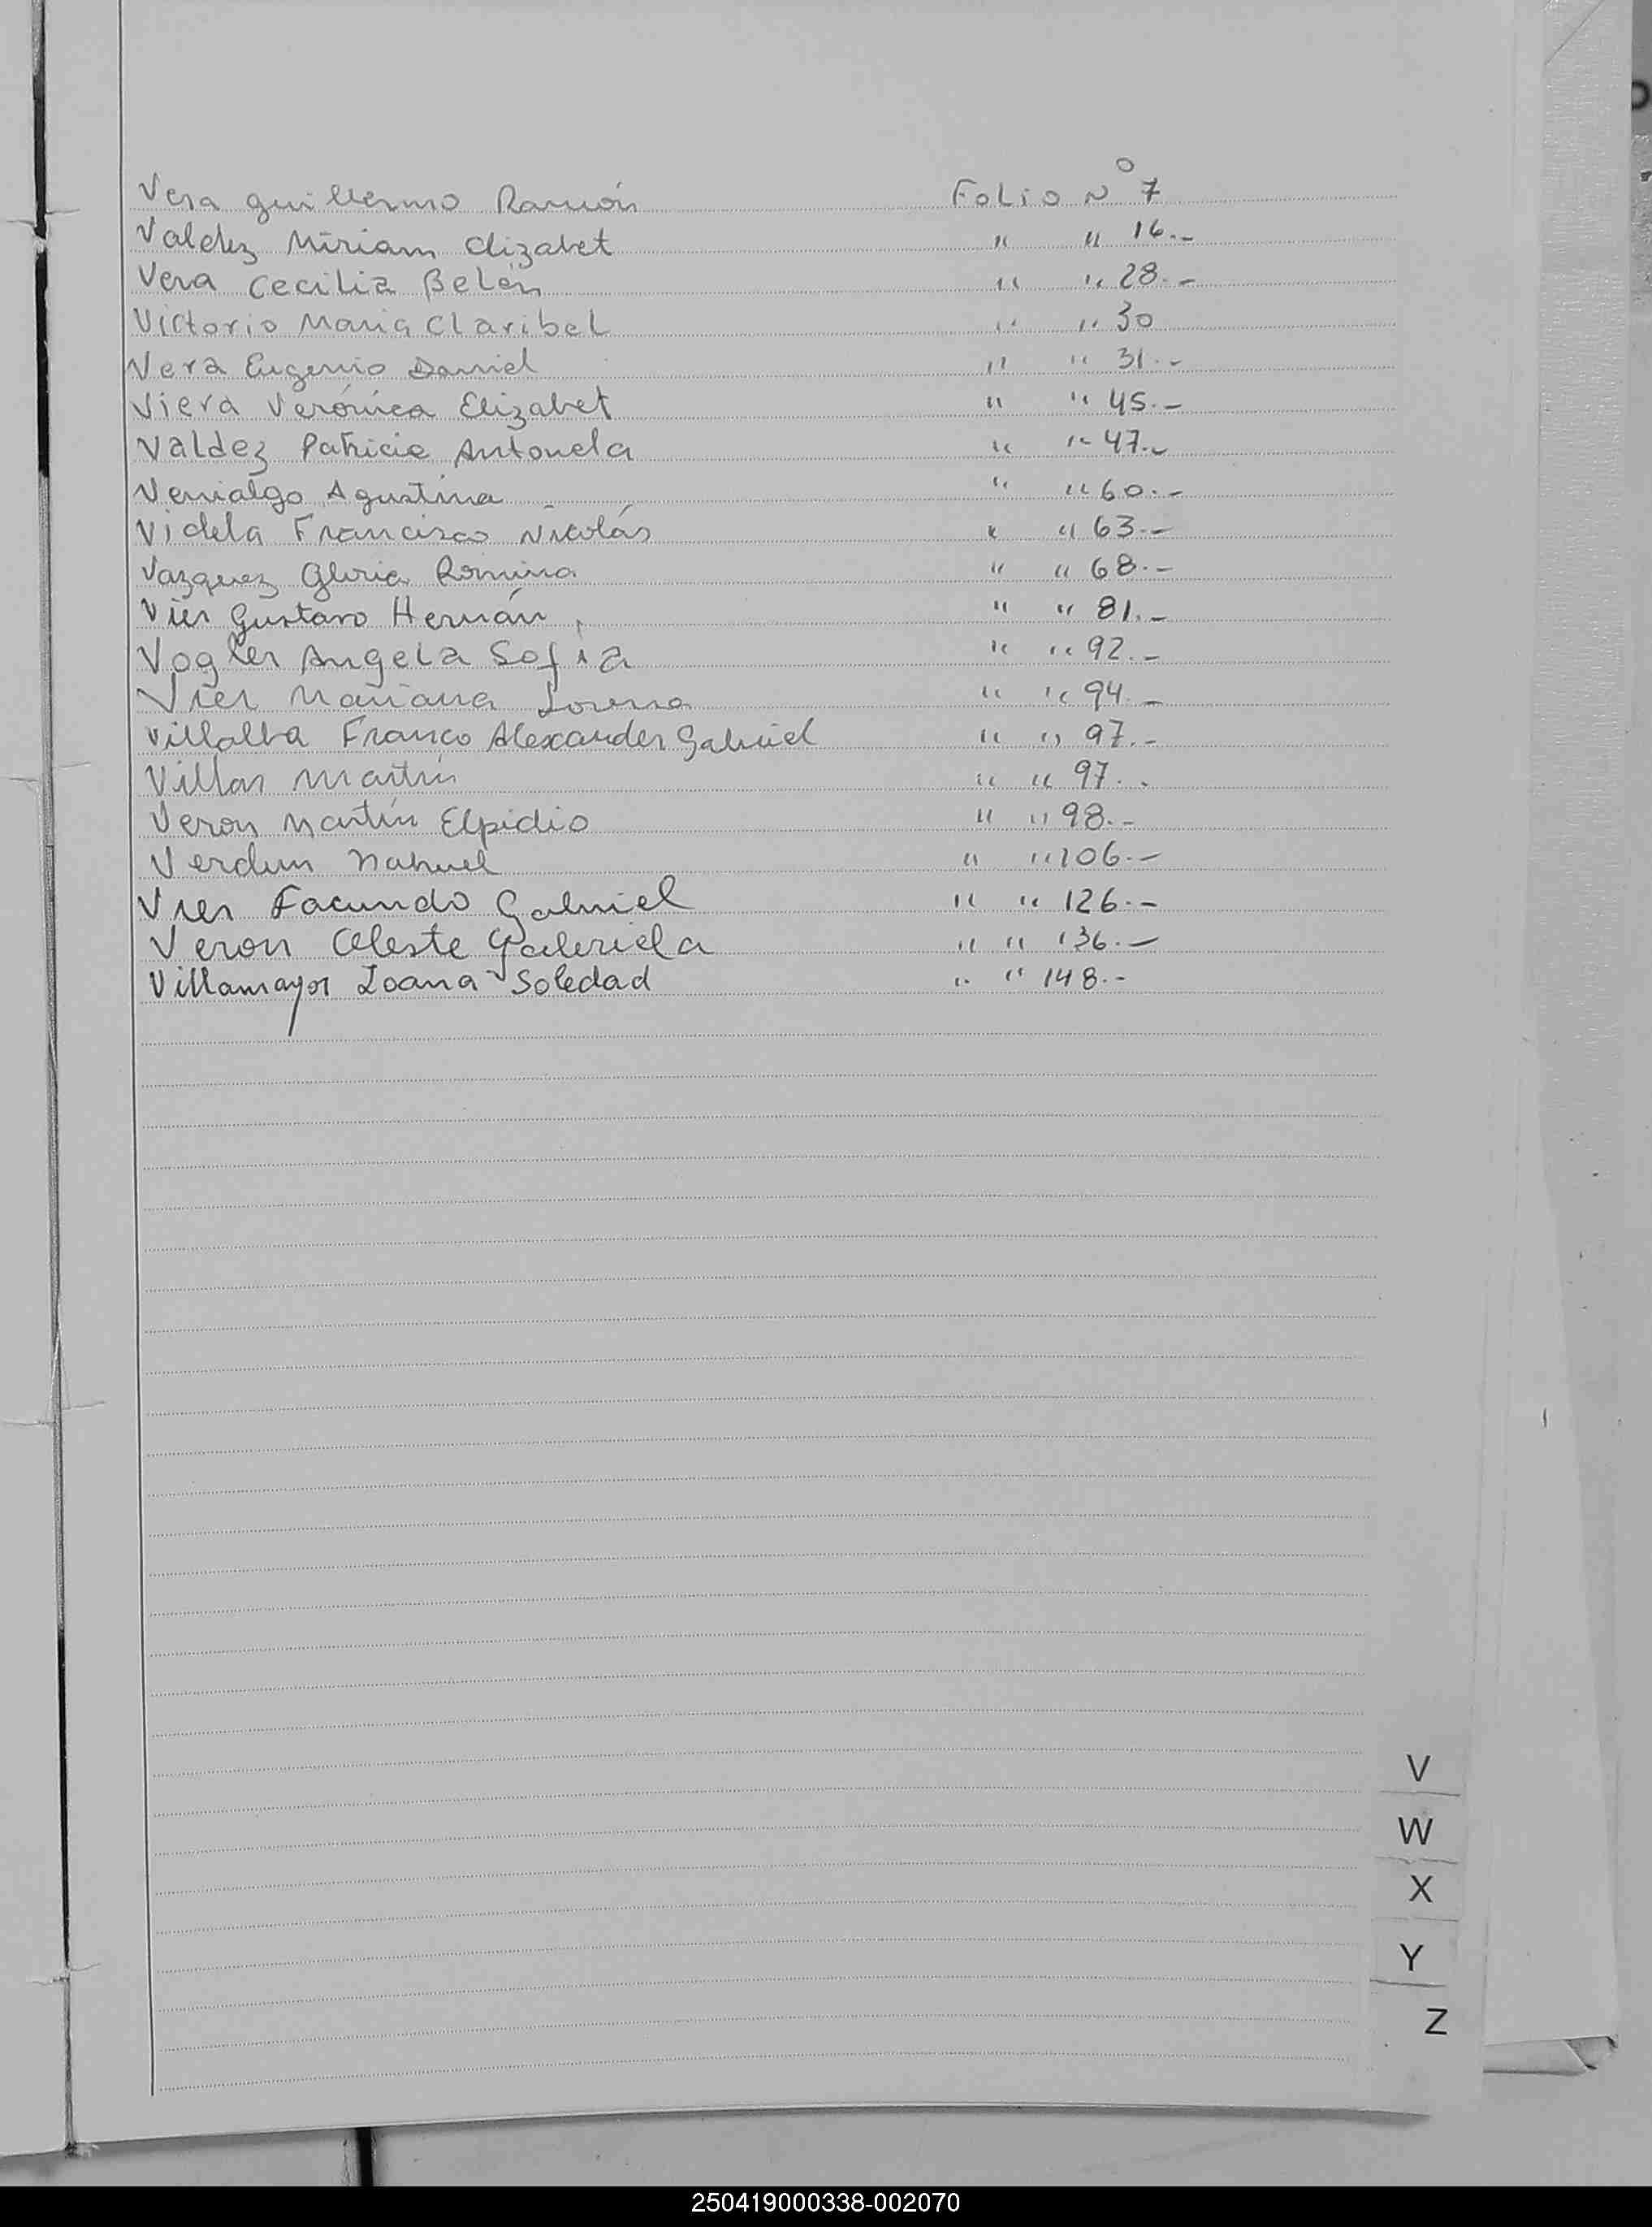 Vera Guillermo Ramón Folio Nº 7
Valdez Miriam Elizabet " " 16.-
Vera Cecilia Belén " " 28.-
Victorio Maria Claribel " " 30
Vera Eugenio Daniel " " 31.-
Viera Verónica Elizabet " " 45.-
Valdez Patricia Antonela " " 47.-
Venialgo Agustina " " 60.-
Videla Francisco Nicolás " " 63.-
Vazquez Gloria Romina " " 68.-
Vier Gustavo Hernán " " 81.-
Vogler Angela Sofia " " 92.-
Vier Mariana Lorena " " 94.-
Villalba Franco Alexander Gabriel " " 97.-
Villar Martín " " 97.-
Veron Martín Elpidio " " 98.-
Verdun Nahuel " " 106.-
Vier Facundo Gabriel " " 126.-
Veron Celeste Gabriela " " 136.-
Villamayor Joana Soledad " " 148.-
V
W
X
Y
Z
250419000338-002070